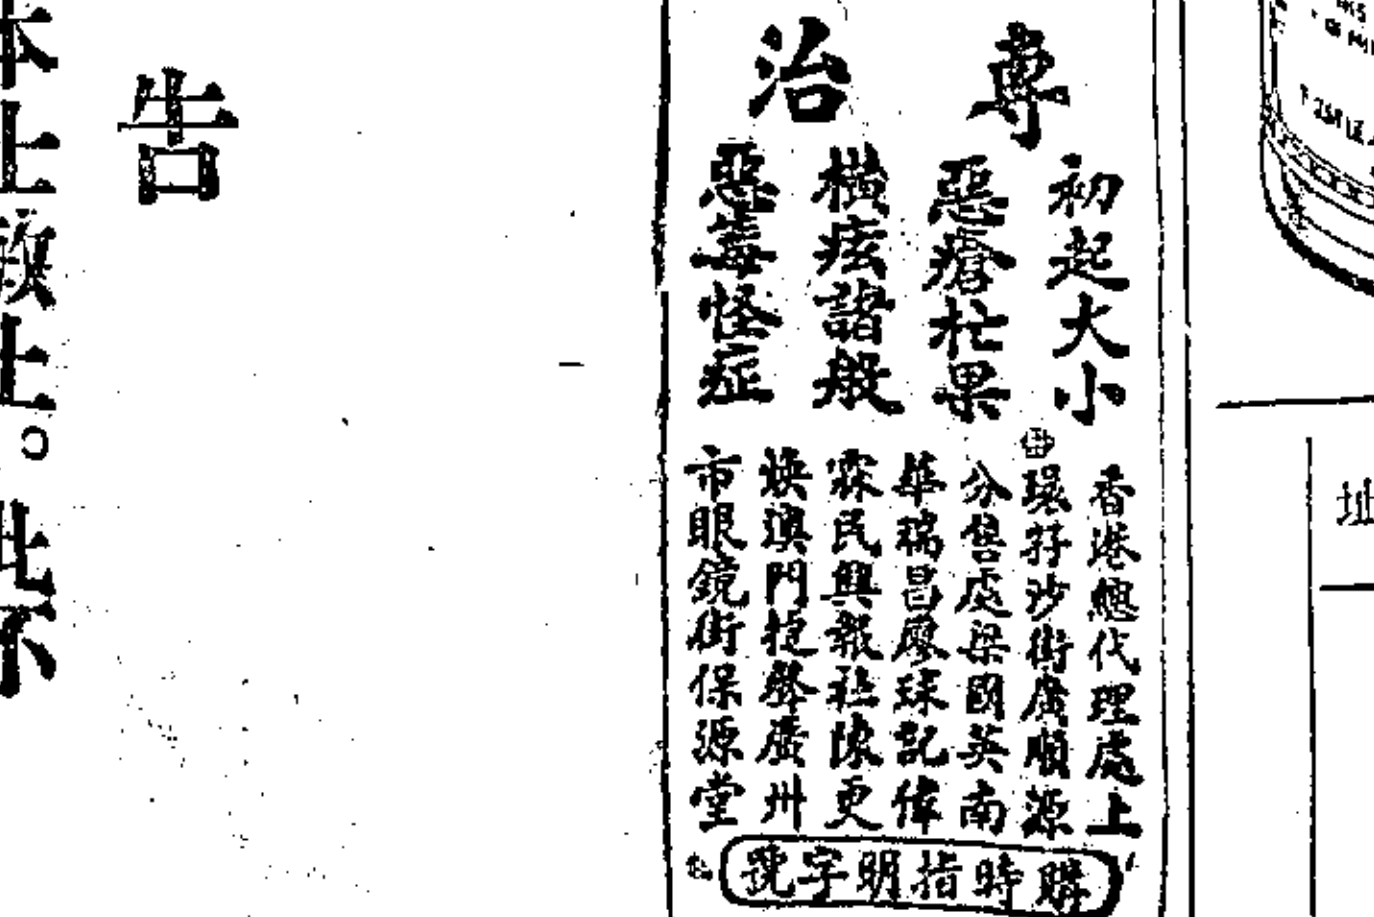 專治
初起大小
惡瘡杧果
橫痃諸般
惡毒怪症
香港總代理處上
環孖沙街廣順源
分售處梁國英南
華瑞昌廖球記偉
霖民興報社陳更
煥澳門挽聲廣州
市眼鏡街保源堂
購時指明字號
址
告
本